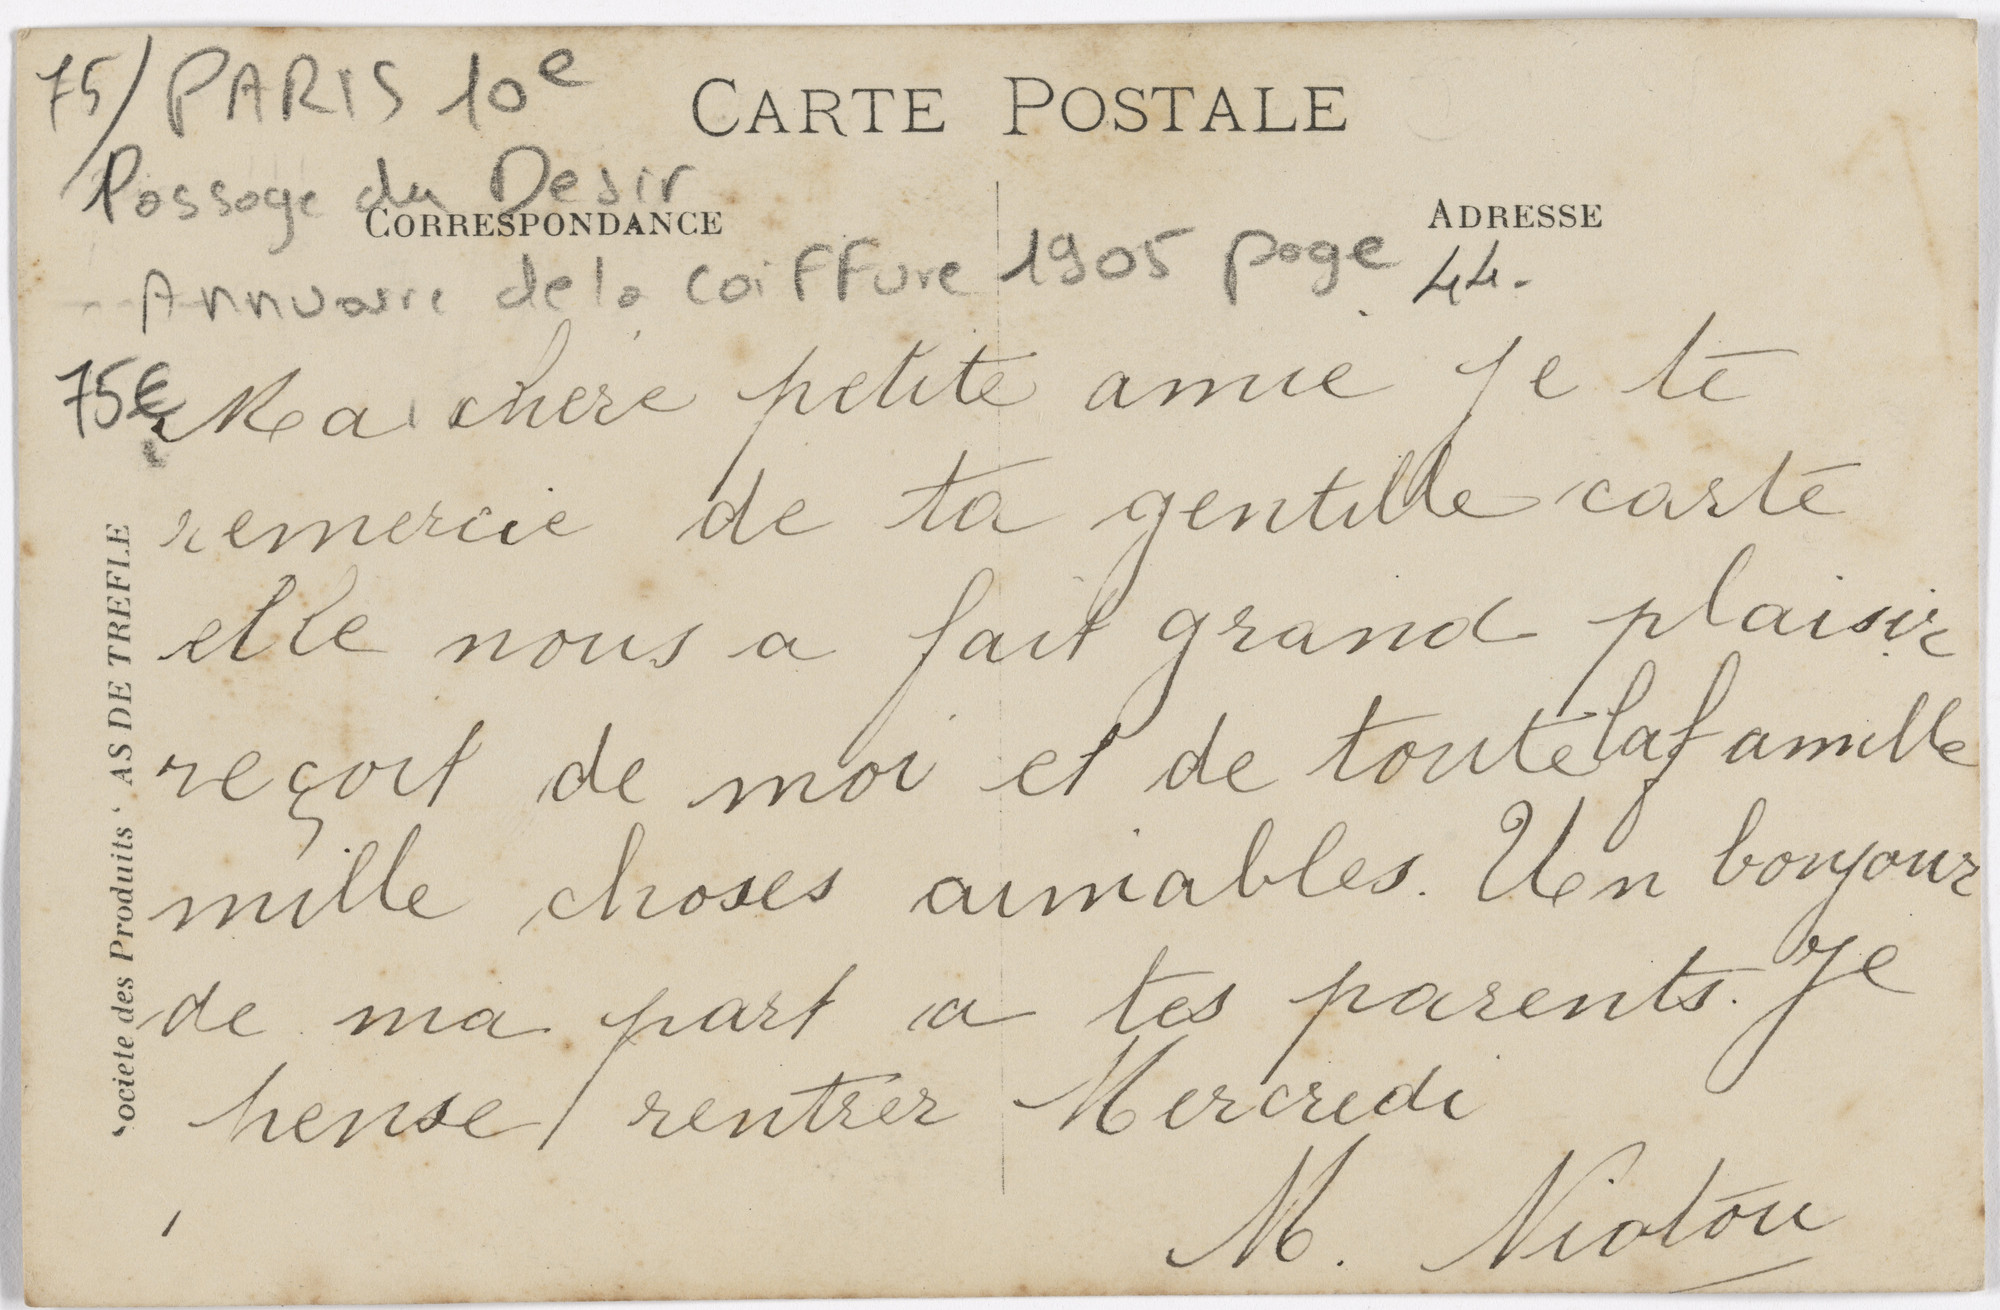 75/ PARIS 10e
CARTE POSTALE
Passage du Desir
CORRESPONDANCE
ADRESSE
Annuaire de la coiffure 1905 page 44.
75€
Ma chere petite amie je te
remercie de ta gentille carte
elle nous a fait grand plaisir
reçoit de moi et de toute la famille
mille choses aimables. Un bonjour
de ma part a tes parents. Je
pense rentrer Mercredi
M.
ociete des Produits ' AS DE TREFLE